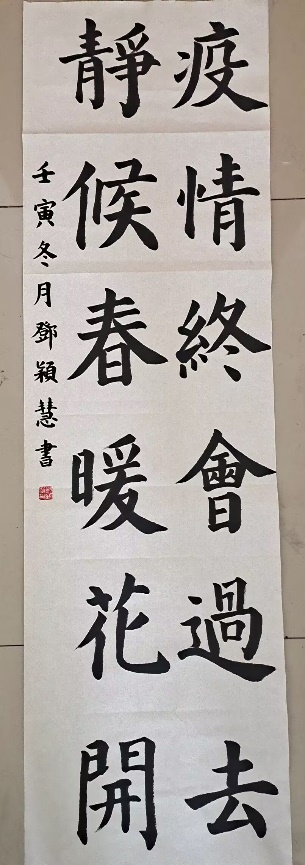 疫情終會過去
靜候春暖花開
壬寅冬月鄧穎慧書